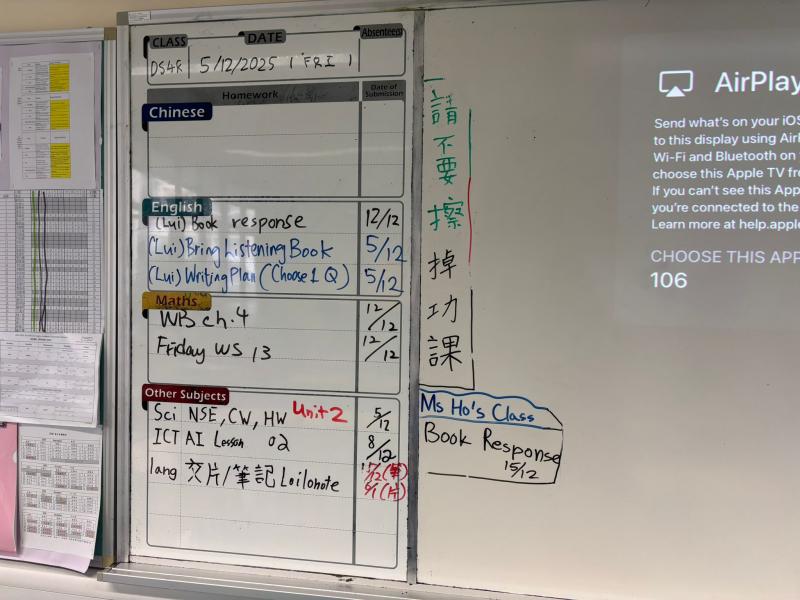 CLASS DATE Absentees
DS4R 5/12/2025 ( FRI )
Homework Date of Submission
Chinese
English
(Lui) Book response 12/12
(Lui) Bring Listening Book 5/12
(Lui) Writing Plan (Choose 1 Q) 5/12
Maths
WB ch.4 12/12
Friday WS 13 12/12
Other Subjects
Sci NSE, CW, HW Unit 2 5/12
ICT AI Lesson 02 8/12
lang 交片/筆記 Loilonote /12(筆)
6/1(片)
請不要擦掉功課
Ms Ho's Class
Book Response
15/12
AirPlay
Send what's on your iOS
to this display using Air
Wi-Fi and Bluetooth on
choose this Apple TV fr
If you can't see this App
you're connected to the
Learn more at help.apple
CHOOSE THIS APP
106